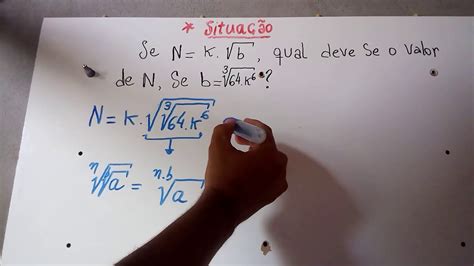 * Situação
Se N = K . √b , qual deve se o valor
de N, Se b = ∛64.K⁶ ?
N = K . √∛64.K⁶
ⁿ√ᵇ√a = ⁿ·ᵇ√a